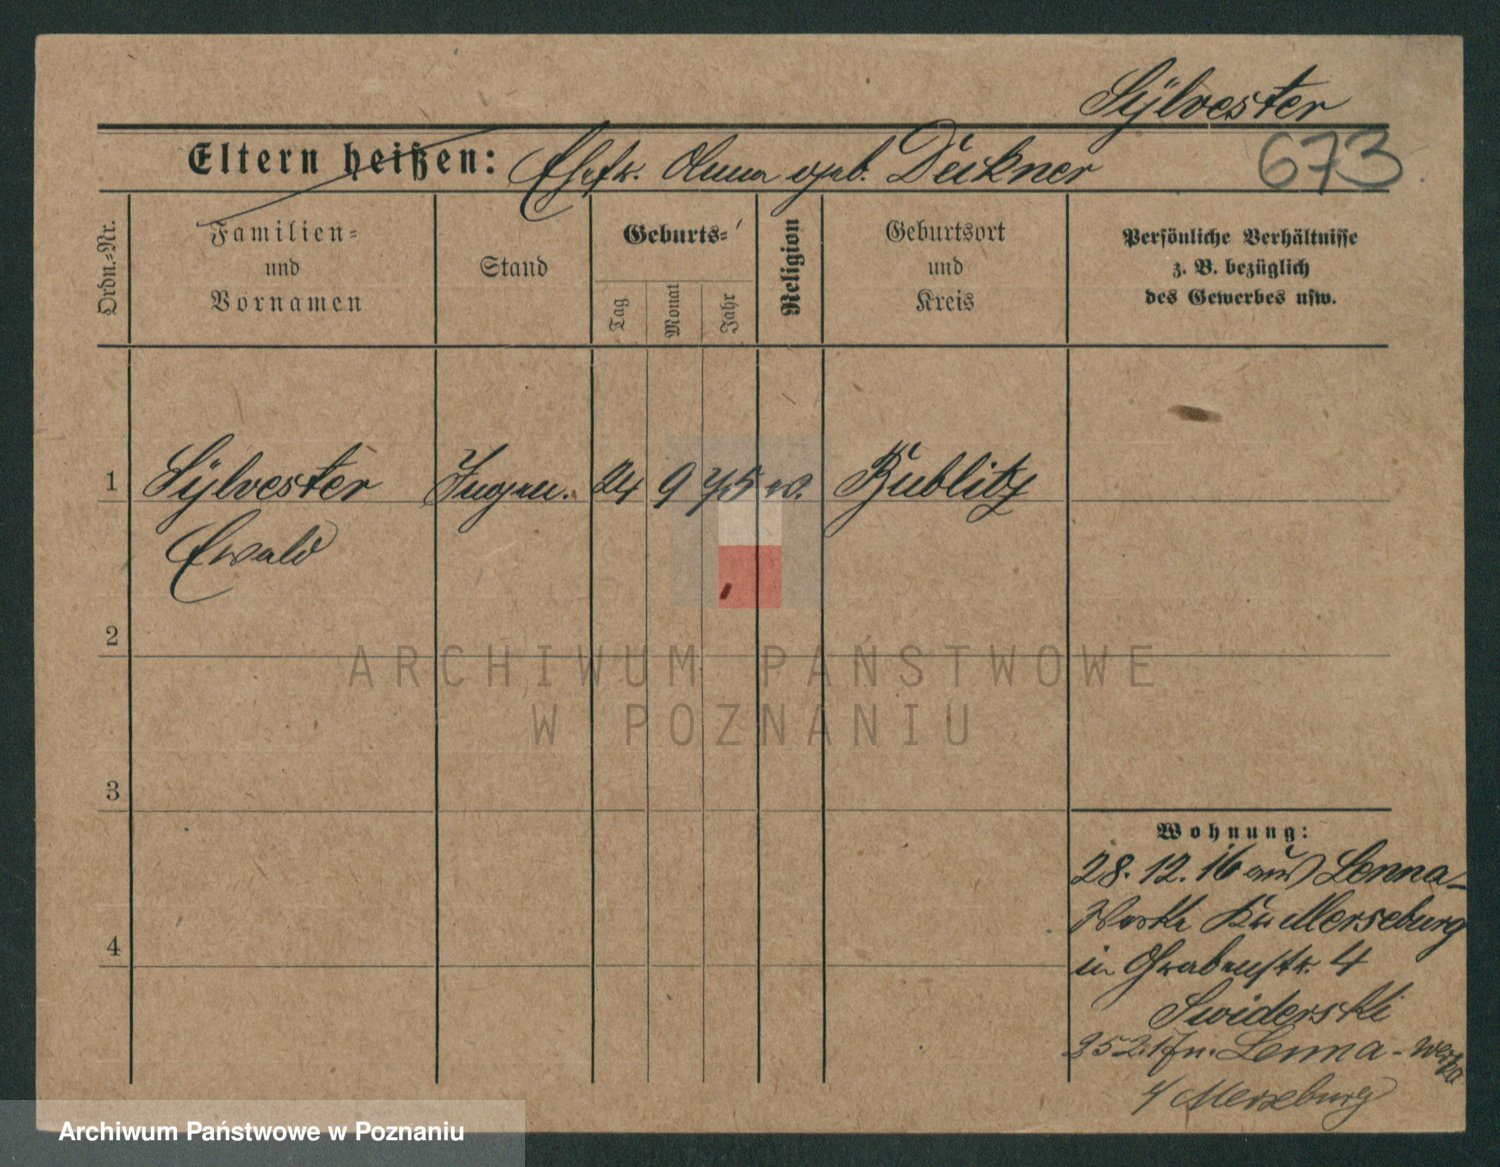 Sylvester
Eltern heißen: Ehefr. Anna geb. Deikner
673
Ordn.-Nr.
Familien-
und
Vornamen
Stand
Geburts-
Tag
Monat
Jahr
Religion
Geburtsort
und
Kreis
Persönliche Verhältnisse
z. B. bezüglich
des Gewerbes usw.
1 Sylvester Ingen. 24 9 75 Bublitz
Ewald
2
3
4
Wohnung:
28. 12. 16 aus Lenna-
Werke Kr. Merseburg
in Grabenstr. 4
Swiderski
25 2. 17 n. Lenna-Werke
Merseburg
ARCHIWUM PAŃSTWOWE
W POZNANIU
Archiwum Państwowe w Poznaniu